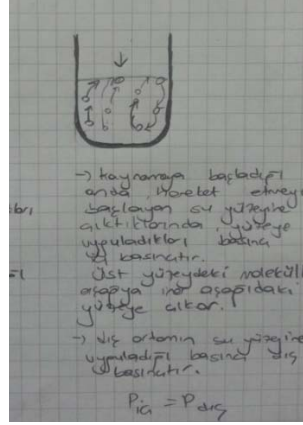 → kaynamaya başladığı
anda hareket etmeye
başlayan su yüzeyine
çıktıklarında yüzeye
uyguladıkları basınç
iç basınçtır.
Üst yüzeydeki molekül
aşağıya inip aşağıdaki
yüzeye çıkar.
→ Dış ortamın su yüzeyine
uyguladığı basınç dış
basınçtır.
Piç = Pdış